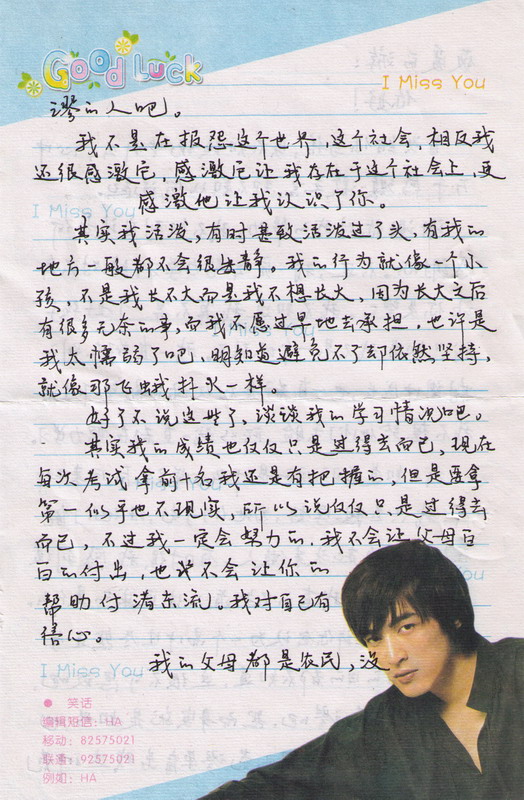 Good Luck
I Miss You
谬的人吧。
我不是在报怨这个世界,这个社会,相反我
还很感激它,感激它让我存在于这个社会上,更
感激他让我认识了你。
I Miss You
其实我活泼,有时甚致活泼过了头,有我的
地方一般都不会很安静。我的行为就像一个小
孩,不是我长不大而是我不想长大,因为长大之后
有很多无奈的事,而我不愿过早地去承担,也许是
我太懦弱了吧,明知道避免不了却依然坚持,
就像那飞蛾扑火一样。
好了不说这些了,谈谈我的学习情况吧。
其实我的成绩也仅仅只是过得去而已,现在
每次考试拿前十名我还是有把握的,但是要拿
第一似乎也不现实,所以说仅仅只是过得去
而已,不过我一定会努力的,我不会让父母白
白的付出,也说不会让你的
帮助付诸东流。我对自己有
信心。
我的父母都是农民,没
I Miss You
笑话
编辑短信:HA
移动:82575021
联通:92575021
例如:HA